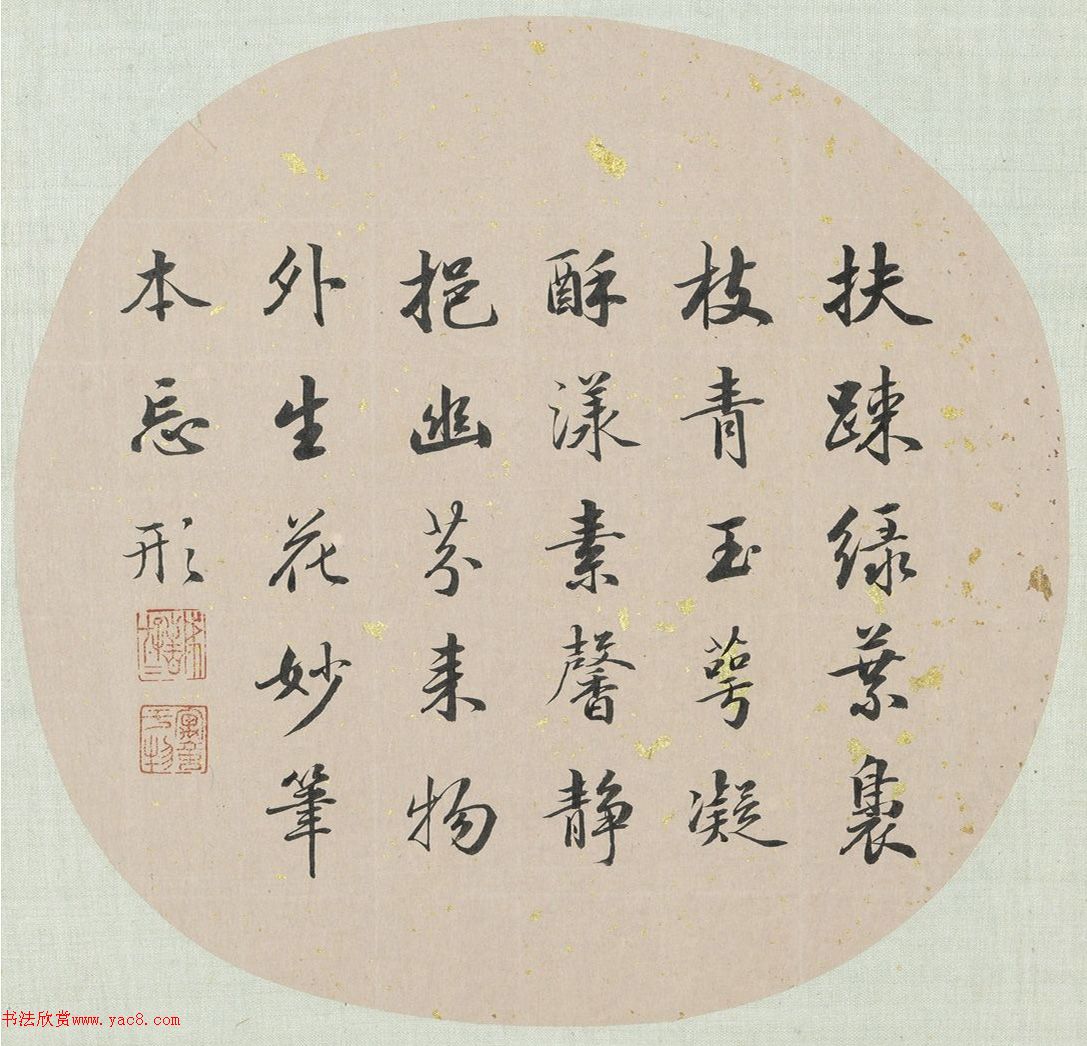 扶踈緑葉裊
枝青玉萼凝
酥漾素馨静
挹幽芬来物
外生花妙筆
本忘形
书法欣赏www.yac8.com